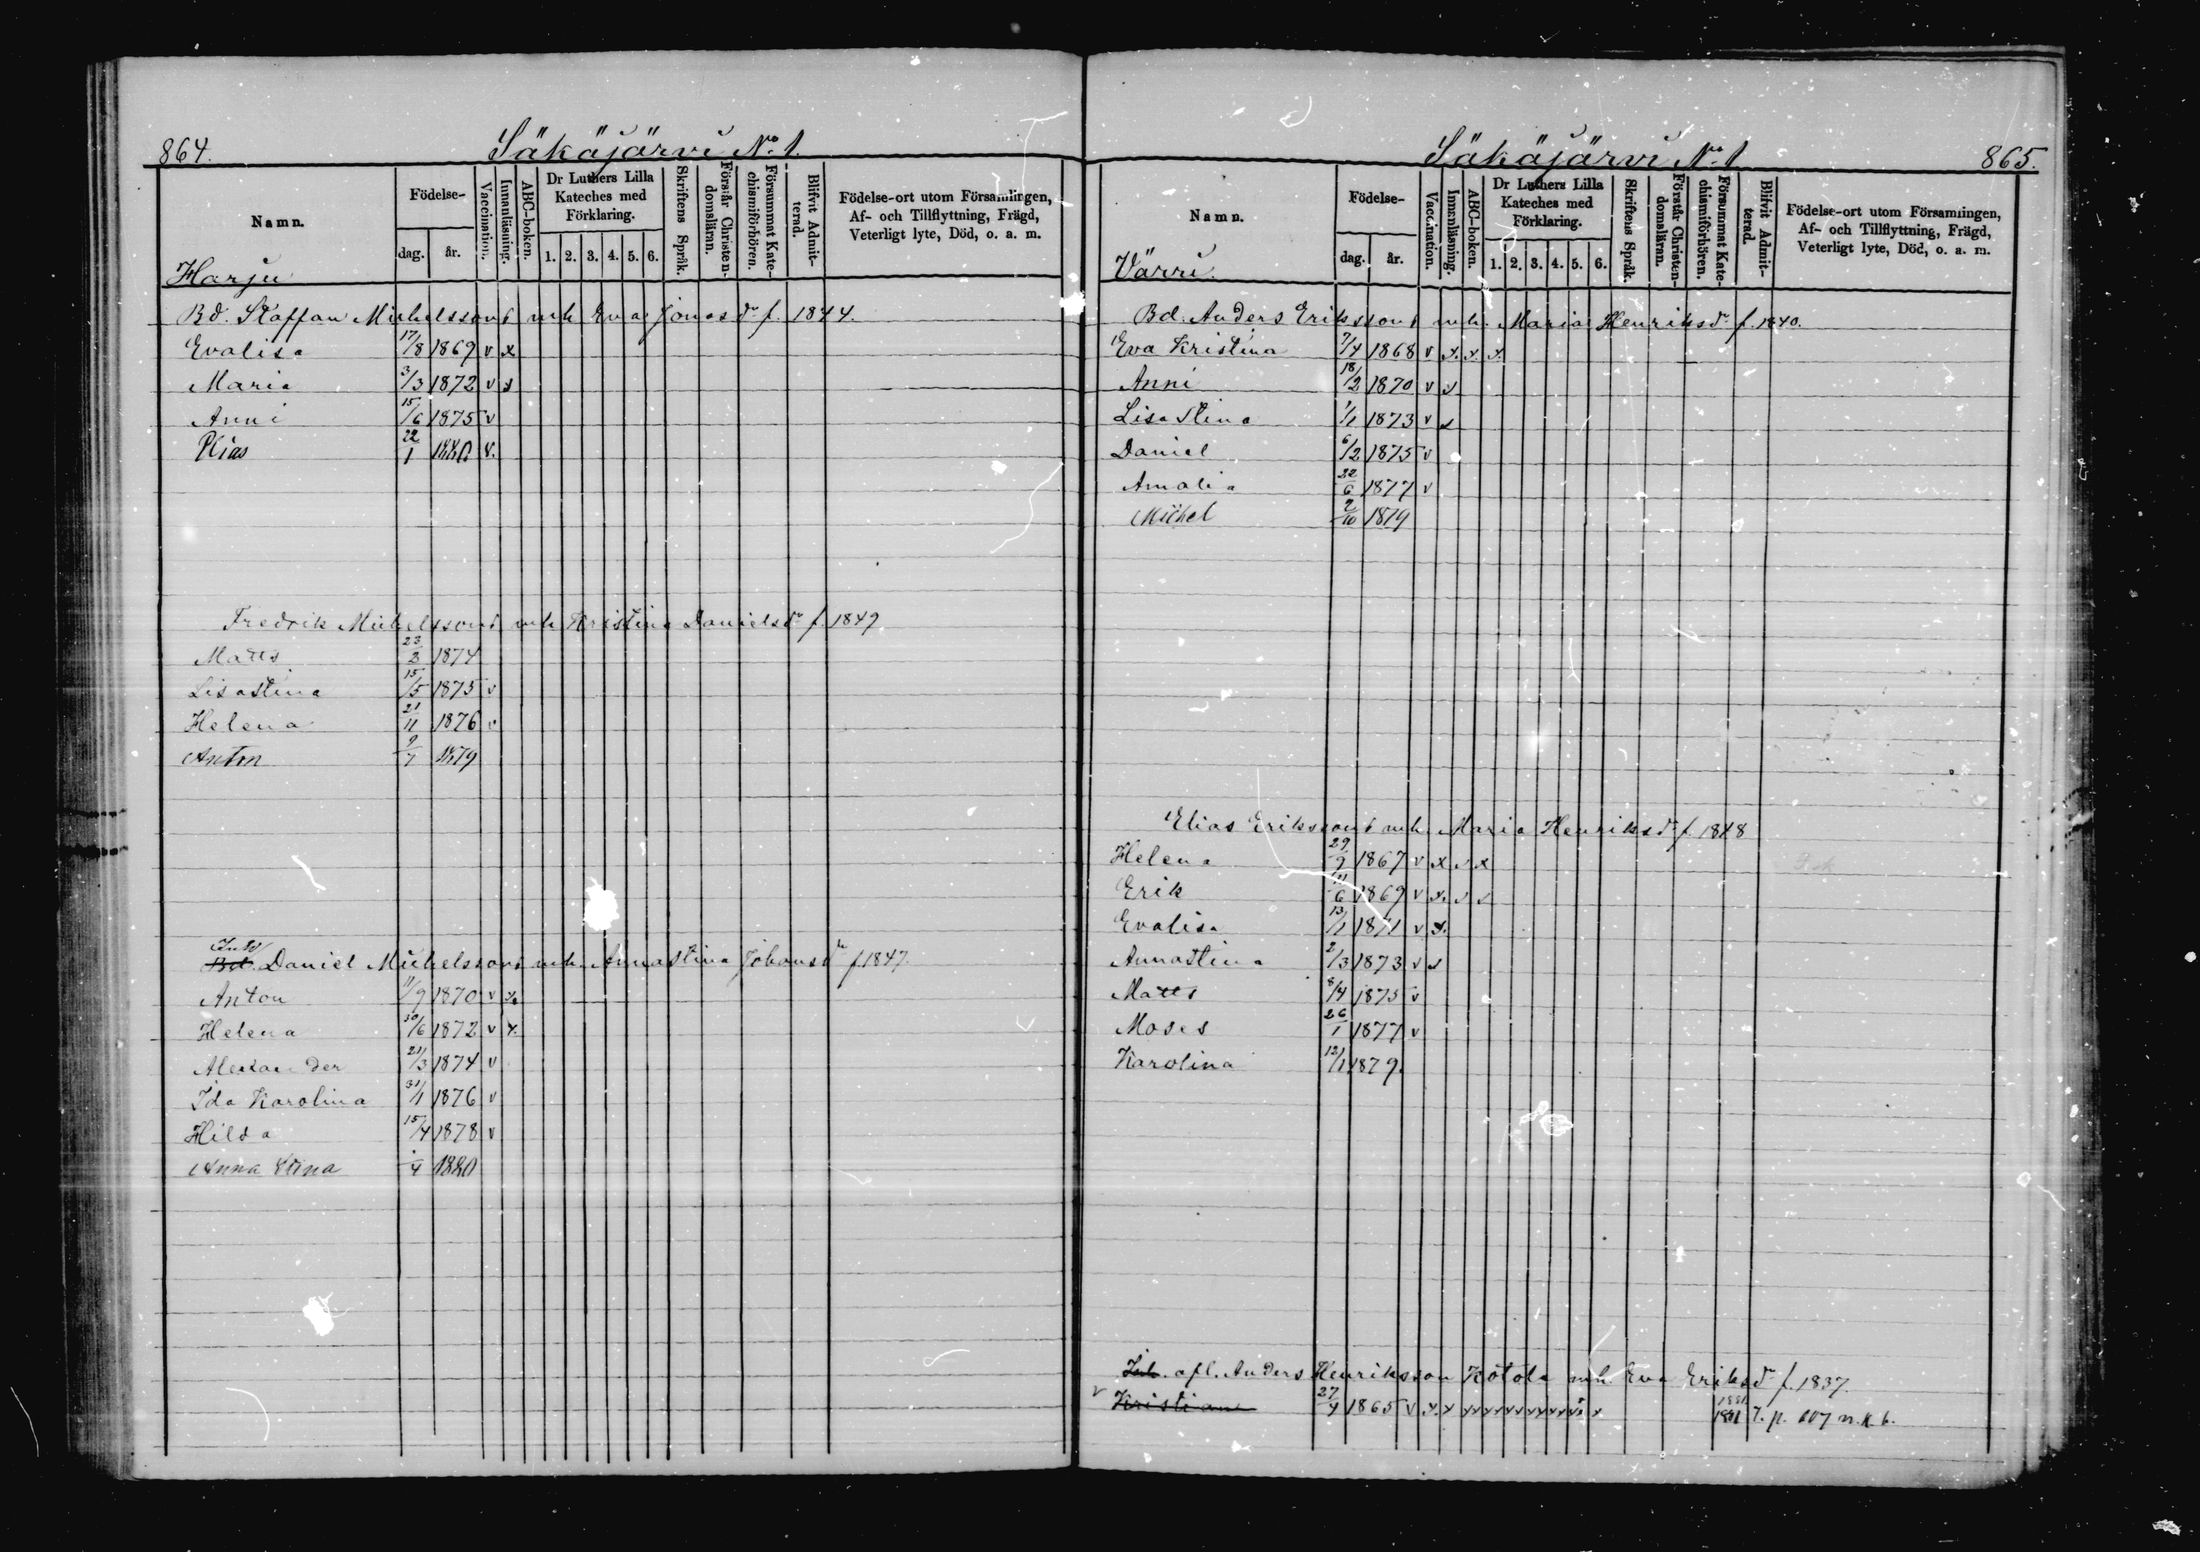 864. Säkäjärvi No. 1.
Namn. Födelse- dag. år. Vaccination. Innanläsning. ABC-boken. Dr Luthers Lilla Kateches med Förklaring. 1. 2. 3. 4. 5. 6. Skriftens Språk. Förstår Christendomsläran. Försummat Katechismiförhören. Blifvit Admitterad. Födelse-ort utom Församlingen, Af- och Tillflyttning, Frägd, Veterligt lyte, Död, o. a. m.
Harju
Bd. Staffan Michelssons mh Eva Jonasdr f. 1844.
Evalisa 17/8 1869 v x
Maria 3/3 1872 v x
Anni 15/6 1875 v
Elias 22/1 1880 v.
Fredrik Michelssons mh Kristina Danielsdr f. 1849
Matts 23/2 1874
Lisastina 15/5 1875 v
Helena 21/11 1876 v
Anton 9/7 1879
Bd. Daniel Michelssons mh. Annastina Johansdr f. 1847.
Anton 11/9 1870 v x
Helena 30/6 1872 v x.
Alexander 21/3 1874 v
Ida Karolina 31/1 1876 v
Hilda 15/4 1878 v
Anna Stina /4 1880
Säkäjärvi No. 1 865.
Namn. Födelse- dag. år. Vaccination. Innanläsning. ABC-boken. Dr Luthers Lilla Kateches med Förklaring. 1. 2. 3. 4. 5. 6. Skriftens Språk. Förstår Christendomsläran. Försummat Katechismiförhören. Blifvit Admitterad. Födelse-ort utom Församlingen, Af- och Tillflyttning, Frägd, Veterligt lyte, Död, o. a. m.
Värri.
Bd. Anders Erikssons mh. Maria Henriksdr f. 1840.
Eva Kristina 7/4 1868 v x. x. x.
Anni 18/2 1870 v x
Lisa Stina 1/1 1873 v x
Daniel 6/2 1875 v
Amalia 22/6 1877 v
Michel 2/10 1879
Elias Erikssons mh. Maria Henriksdr f. 1848
Helena 29/9 1867 v x x x
Erik 11/6 1869 v x. x x
Evalisa 13/1 1871 v x.
Annastina 2/3 1873 v x
Matts 8/4 1875 v
Moses 26/1 1877 v
Karolina 12/1 1879.
Inh. afl. Anders Henriksson Kotola mh. Eva Eriksdr f. 1837.
v Kristian 27/4 1865 v x. x x x x x x x x x x x 1881 T. p. 007 n. k. b.